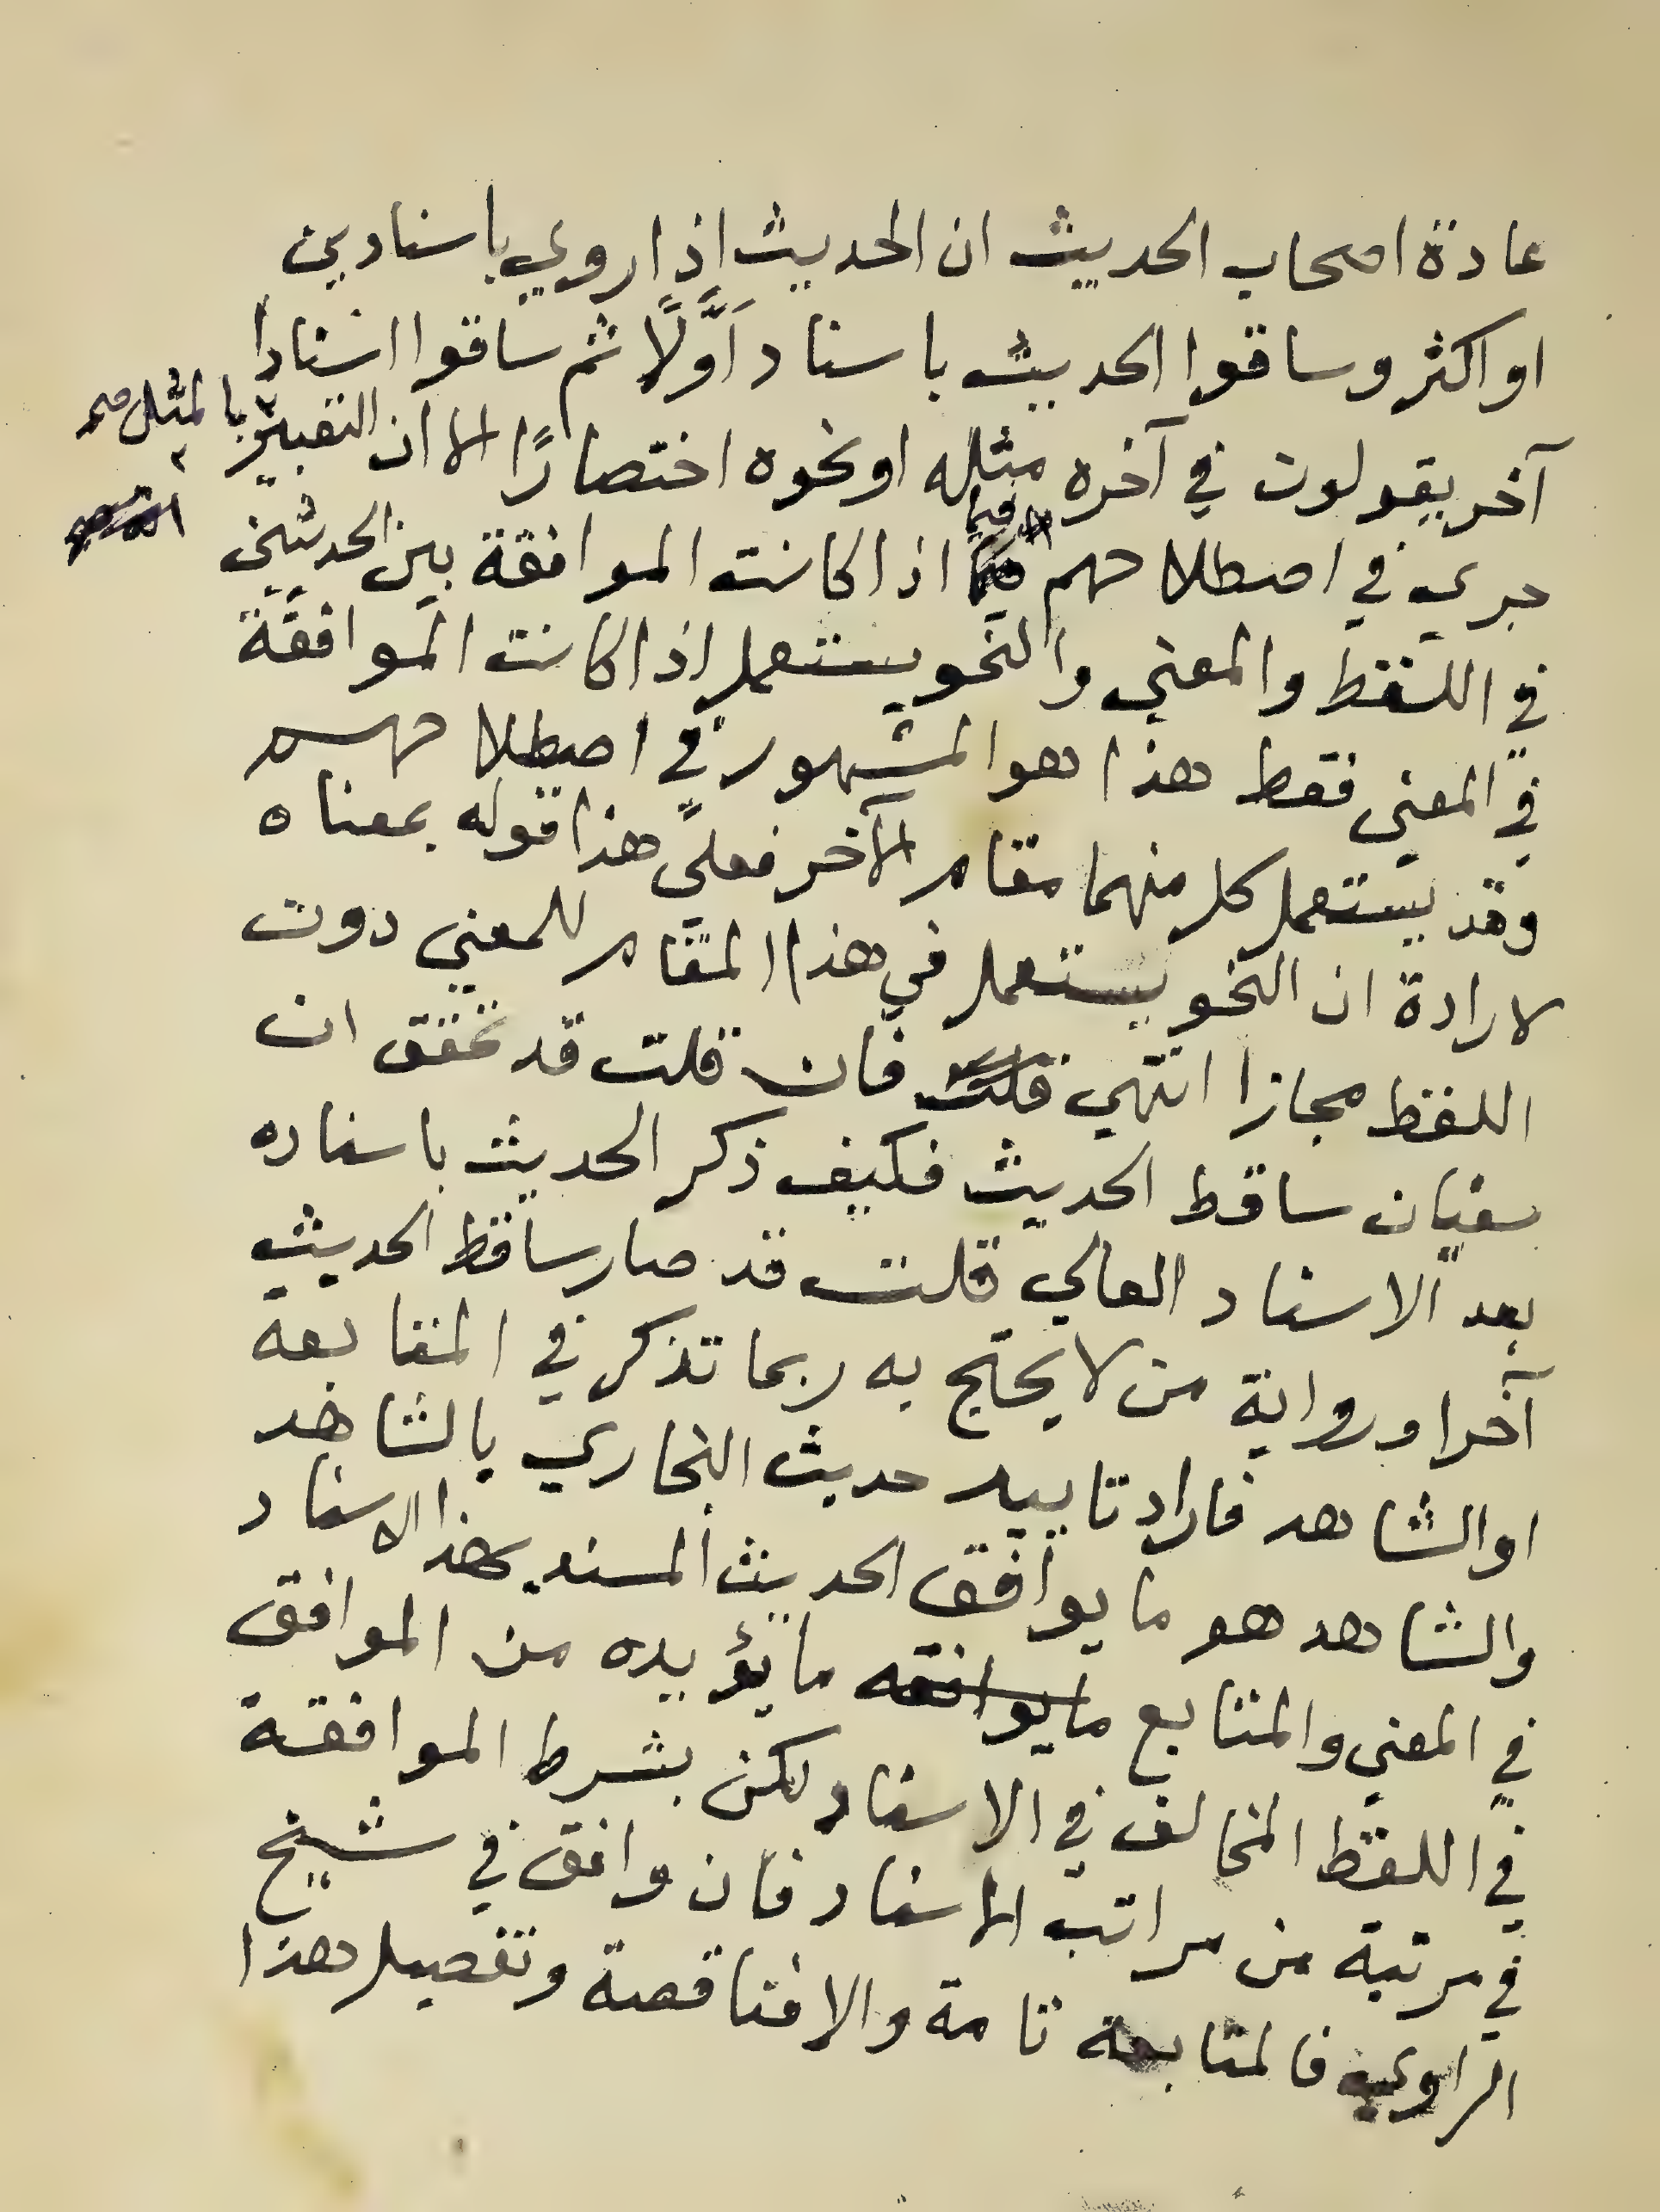 عادة اصحاب الحديث ان الحديث اذا روي باسنادين
او اكثر وساقوا الحديث باسناد اَوَّلًا ثم ساقوا اسنادا
آخر يقولون في آخره مثله او نحوه اختصارًا الا ان التعبير بالمثل صح
جري في اصطلاحهم فيما اذا كانت الموافقة بين الحديثين
في اللفظ والمعني والنحو يستعمل اذا كانت الموافقة
في المعني فقط هذا هو المشهور في اصطلاحهم
وقد يستعمل كل منهما مقام الآخر فعلي هذا قوله بمعناه
لارادة ان النحو يستعمل في هذا المقام للمعني دون
اللفظ مجازا انتهي قلت فان قلت قد تحقق ان
سفيان ساقط الحديث فكيف ذكر الحديث باسناده
بعد الاسناد العالي قلت قد صار ساقط الحديث
آخرا ورواية من لا يحتج به ربما تذكر في المتابعة
او الشاهد فاراد تاييد حديث البخاري بالشاهد
والشاهد هو ما يوافق الحديث المسند بهذا الاسناد
في المعني والمتابع ما يوافقه ما يؤيده من الموافق
في اللفظ المخالف في الاسناد لكن بشرط الموافقة
في مرتبة من مراتب الاسناد فان وافق في شيخ
الراوي فالمتابعة تامة والا فناقصة وتفصيل هذا